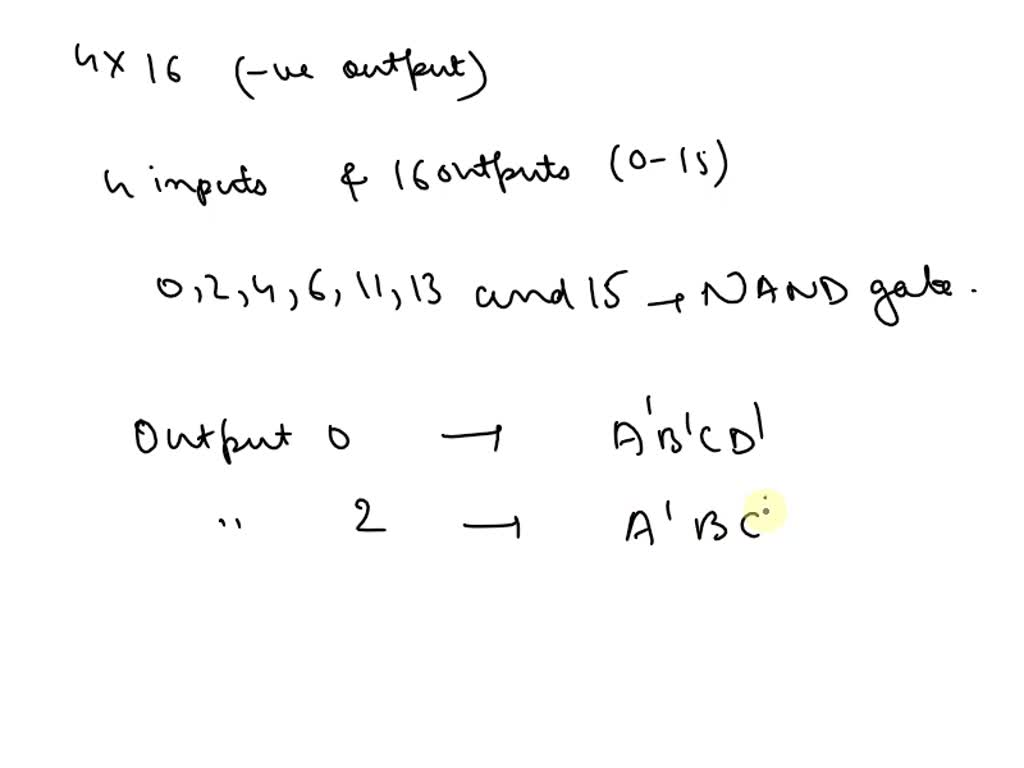 4x16 (-ve output)
4 inputs & 16 outputs (0-15)
0,2,4,6,11,13 and 15 → NAND gate.
Output 0 → A'B'CD'
" 2 → A'BC'